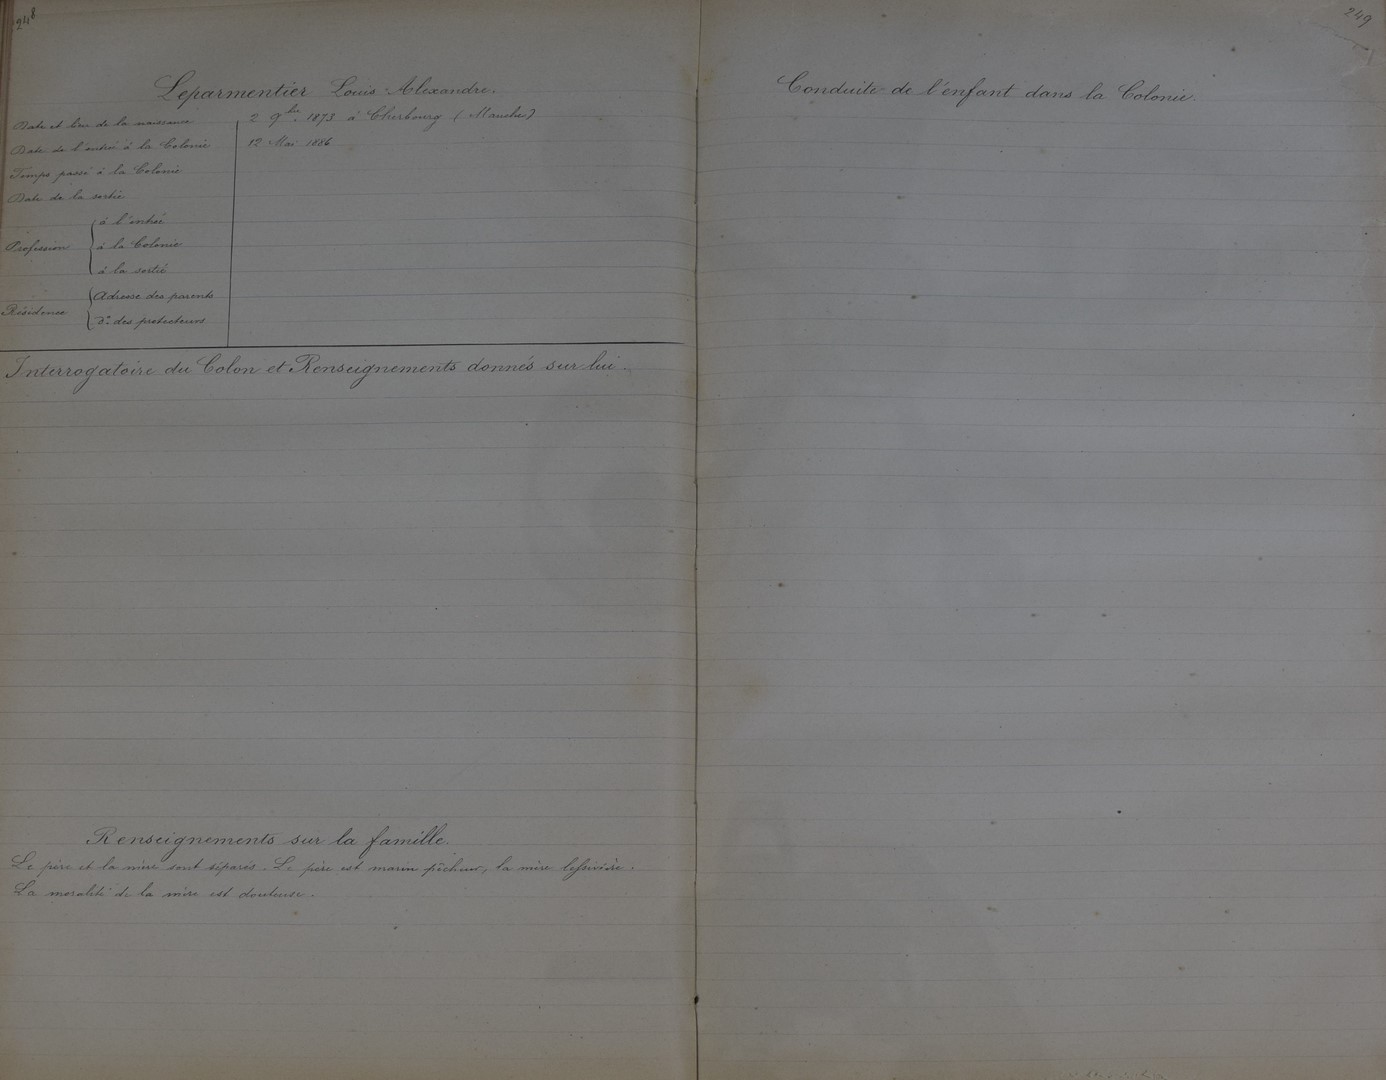 248
Leparmentier Louis Alexandre.
Date et lieu de la naissance 2 9bre. 1873 à Cherbourg (Manche)
Date de l'entrée à la Colonie 12 Mai 1886
Temps passé à la Colonie
Date de la sortie
Profession
à l'entrée
à la Colonie
à la sortie
Résidence
Adresse des parents
do. des protecteurs
Interrogatoire du Colon et Renseignements donnés sur lui.
Renseignements sur la famille.
Le père et la mère sont séparés. Le père est marin pêcheur, la mère lessivière.
La moralité de la mère est douteuse.
249
Conduite de l'enfant dans la Colonie.